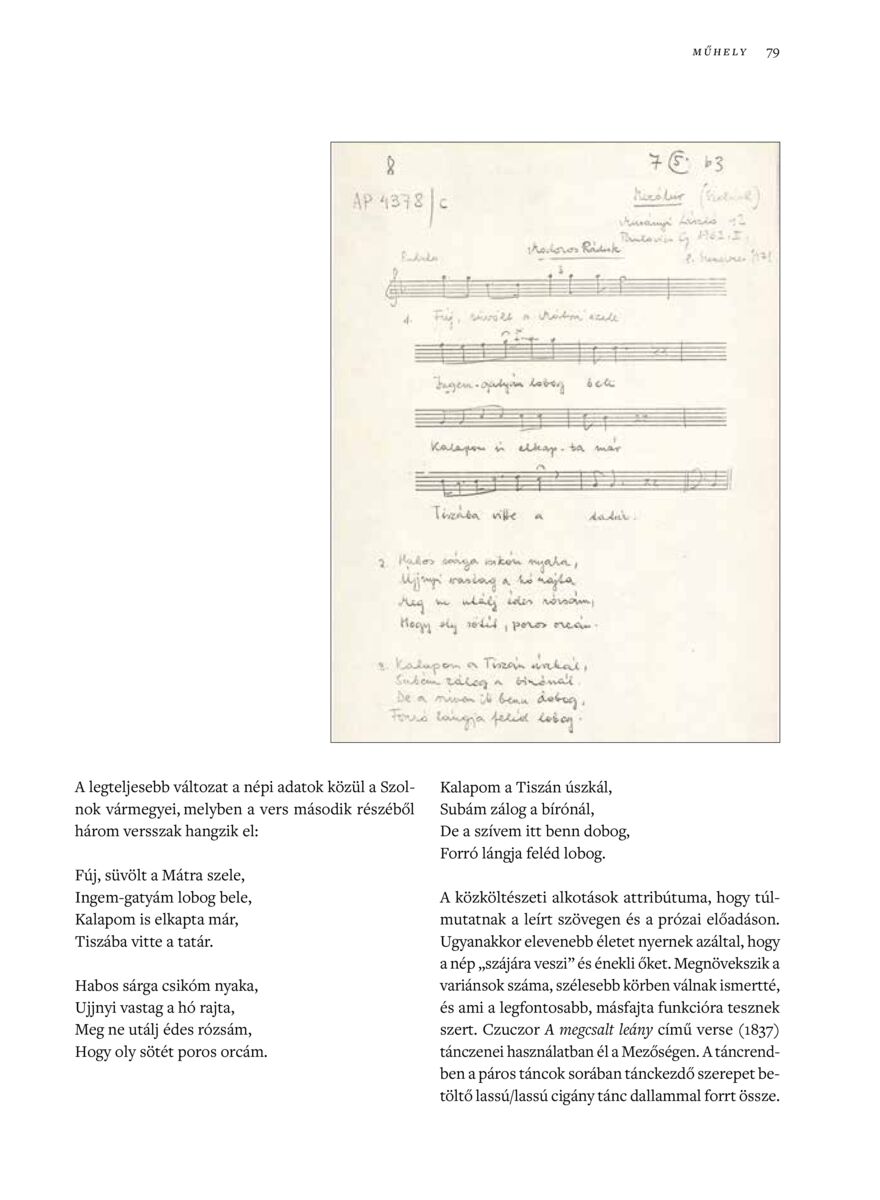 MŰHELY 79
8
7 5 b3
AP 4378/c
Mezőtúr (Szolnok)
Murányi László 12
1962. I.
Modoros Rádiuk
Rubato
1. Fúj, süvölt a Mátra szele
Ingem-gatyám lobog bele
Kalapom is elkap-ta már
Tiszába vitte a tatár.
2. Habos sárga csikóm nyaka,
Ujjnyi vastag a hó rajta
Meg ne utálj édes rózsám,
Hogy oly sötét, poros orcám.
3. Kalapom a Tiszán úszkál,
Subám zálog a bírónál.
De a szívem itt benn dobog,
Forró lángja feléd lobog.
A legteljesebb változat a népi adatok közül a Szol-
nok vármegyei, melyben a vers második részéből
három versszak hangzik el:
Fúj, süvölt a Mátra szele,
Ingem-gatyám lobog bele,
Kalapom is elkapta már,
Tiszába vitte a tatár.
Habos sárga csikóm nyaka,
Ujjnyi vastag a hó rajta,
Meg ne utálj édes rózsám,
Hogy oly sötét poros orcám.
Kalapom a Tiszán úszkál,
Subám zálog a bírónál,
De a szívem itt benn dobog,
Forró lángja feléd lobog.
A közköltészeti alkotások attribútuma, hogy túl-
mutatnak a leírt szövegen és a prózai előadáson.
Ugyanakkor elevenebb életet nyernek azáltal, hogy
a nép „szájára veszi” és énekli őket. Megnövekszik a
variánsok száma, szélesebb körben válnak ismertté,
és ami a legfontosabb, másfajta funkcióra tesznek
szert. Czuczor A megcsalt leány című verse (1837)
tánczenei használatban él a Mezőségen. A táncrend-
ben a páros táncok sorában tánckezdő szerepet be-
töltő lassú/lassú cigány tánc dallammal forrt össze.